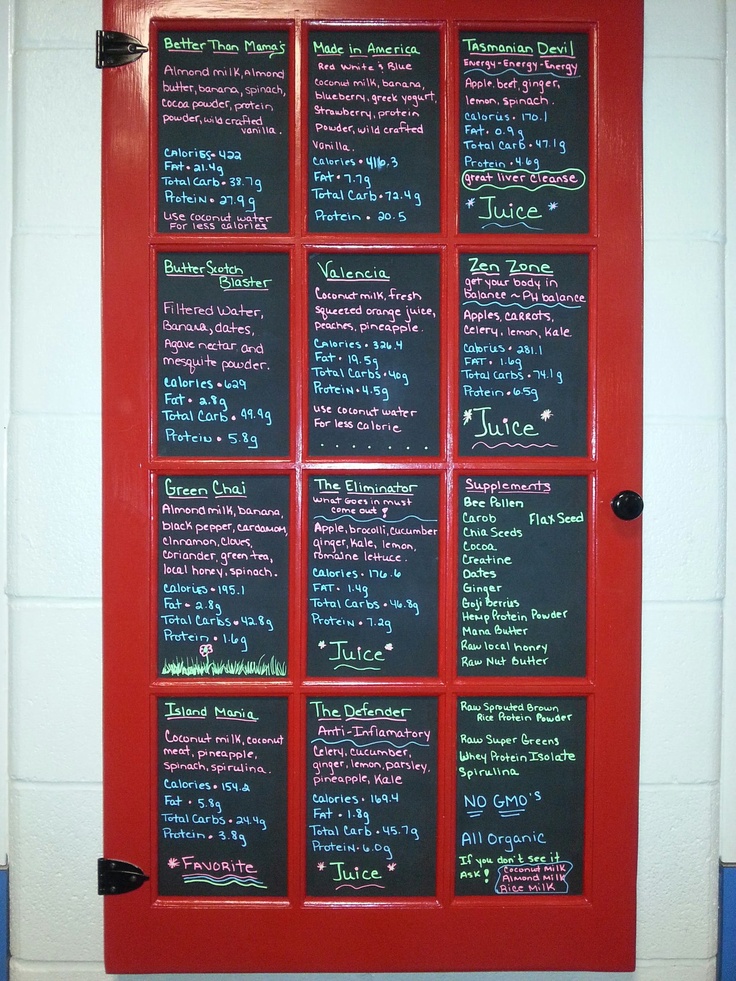 Better Than Mama's
Almond milk, Almond
butter, banana, spinach,
cocoa powder, protein
powder, wild crafted
vanilla.
Calories • 422
Fat • 21.4g
Total Carb • 38.7g
Protein • 27.9g
use coconut water
For less calories
Made in America
Red White & Blue
Coconut milk, banana,
blueberry, greek yogurt,
Strawberry, protein
Powder, wild crafted
Vanilla.
Calories • 416.3
Fat • 7.7g
Total Carb • 72.4g
Protein • 20.5
Tasmanian Devil
Energy-Energy-Energy
Apple, beet, ginger,
lemon, spinach.
calories • 170.1
Fat • 0.9g
Total Carb • 47.1g
Protein • 4.6g
great liver cleanse
*Juice*
ButterScotch
Blaster
Filtered Water,
Banana, dates,
Agave nectar and
mesquite powder.
calories • 629
Fat • 2.8g
Total Carb • 49.9g
Protein • 5.8g
Valencia
Coconut milk, fresh
squeezed orange juice,
peaches, pineapple.
Calories • 326.4
Fat • 19.5g
Total Carbs • 40g
Protein • 4.5g
use coconut water
For less calorie
Zen Zone
get your body in
balance ~ PH balance
Apples, carrots,
Celery, lemon, Kale
calories • 281.1
FAT • 1.6g
Total Carbs • 74.1g
Protein • 6.5g
*Juice*
Green Chai
Almond milk, banana,
black pepper, cardamom,
Cinnamon, Cloves,
Coriander, green tea,
local honey, spinach.
Calories • 195.1
Fat • 2.8g
Total Carbs • 42.8g
Protein • 1.6g
The Eliminator
What Goes in must
come out!
Apple, brocolli, cucumber
ginger, Kale, lemon,
romaine lettuce.
Calories • 176.6
FAT • 1.4g
Total Carbs • 46.8g
Protein • 7.2g
*Juice*
Supplements
Bee Pollen
Carob Flax Seed
Chia Seeds
Cocoa
Creatine
Dates
Ginger
Goji Berries
Hemp Protein Powder
Mana Butter
Raw local honey
Raw Nut Butter
Island Mania
Coconut milk, coconut
meat, pineapple,
Spinach, spirulina.
Calories • 154.2
Fat • 5.8g
Total Carbs • 24.4g
Protein • 3.8g
*FAVORITE*
The Defender
Anti-Inflamatory
Celery, cucumber,
ginger, lemon, parsley,
pineapple, Kale
Calories • 169.4
FAT • 1.8g
Total Carb • 45.7g
Protein • 6.0g
*Juice*
Raw Sprouted Brown
Rice Protein Powder
Raw Super Greens
Whey Protein Isolate
Spirulina
NO GMO's
All Organic
If you don't see it
ASK!
Coconut Milk
Almond Milk
Rice Milk